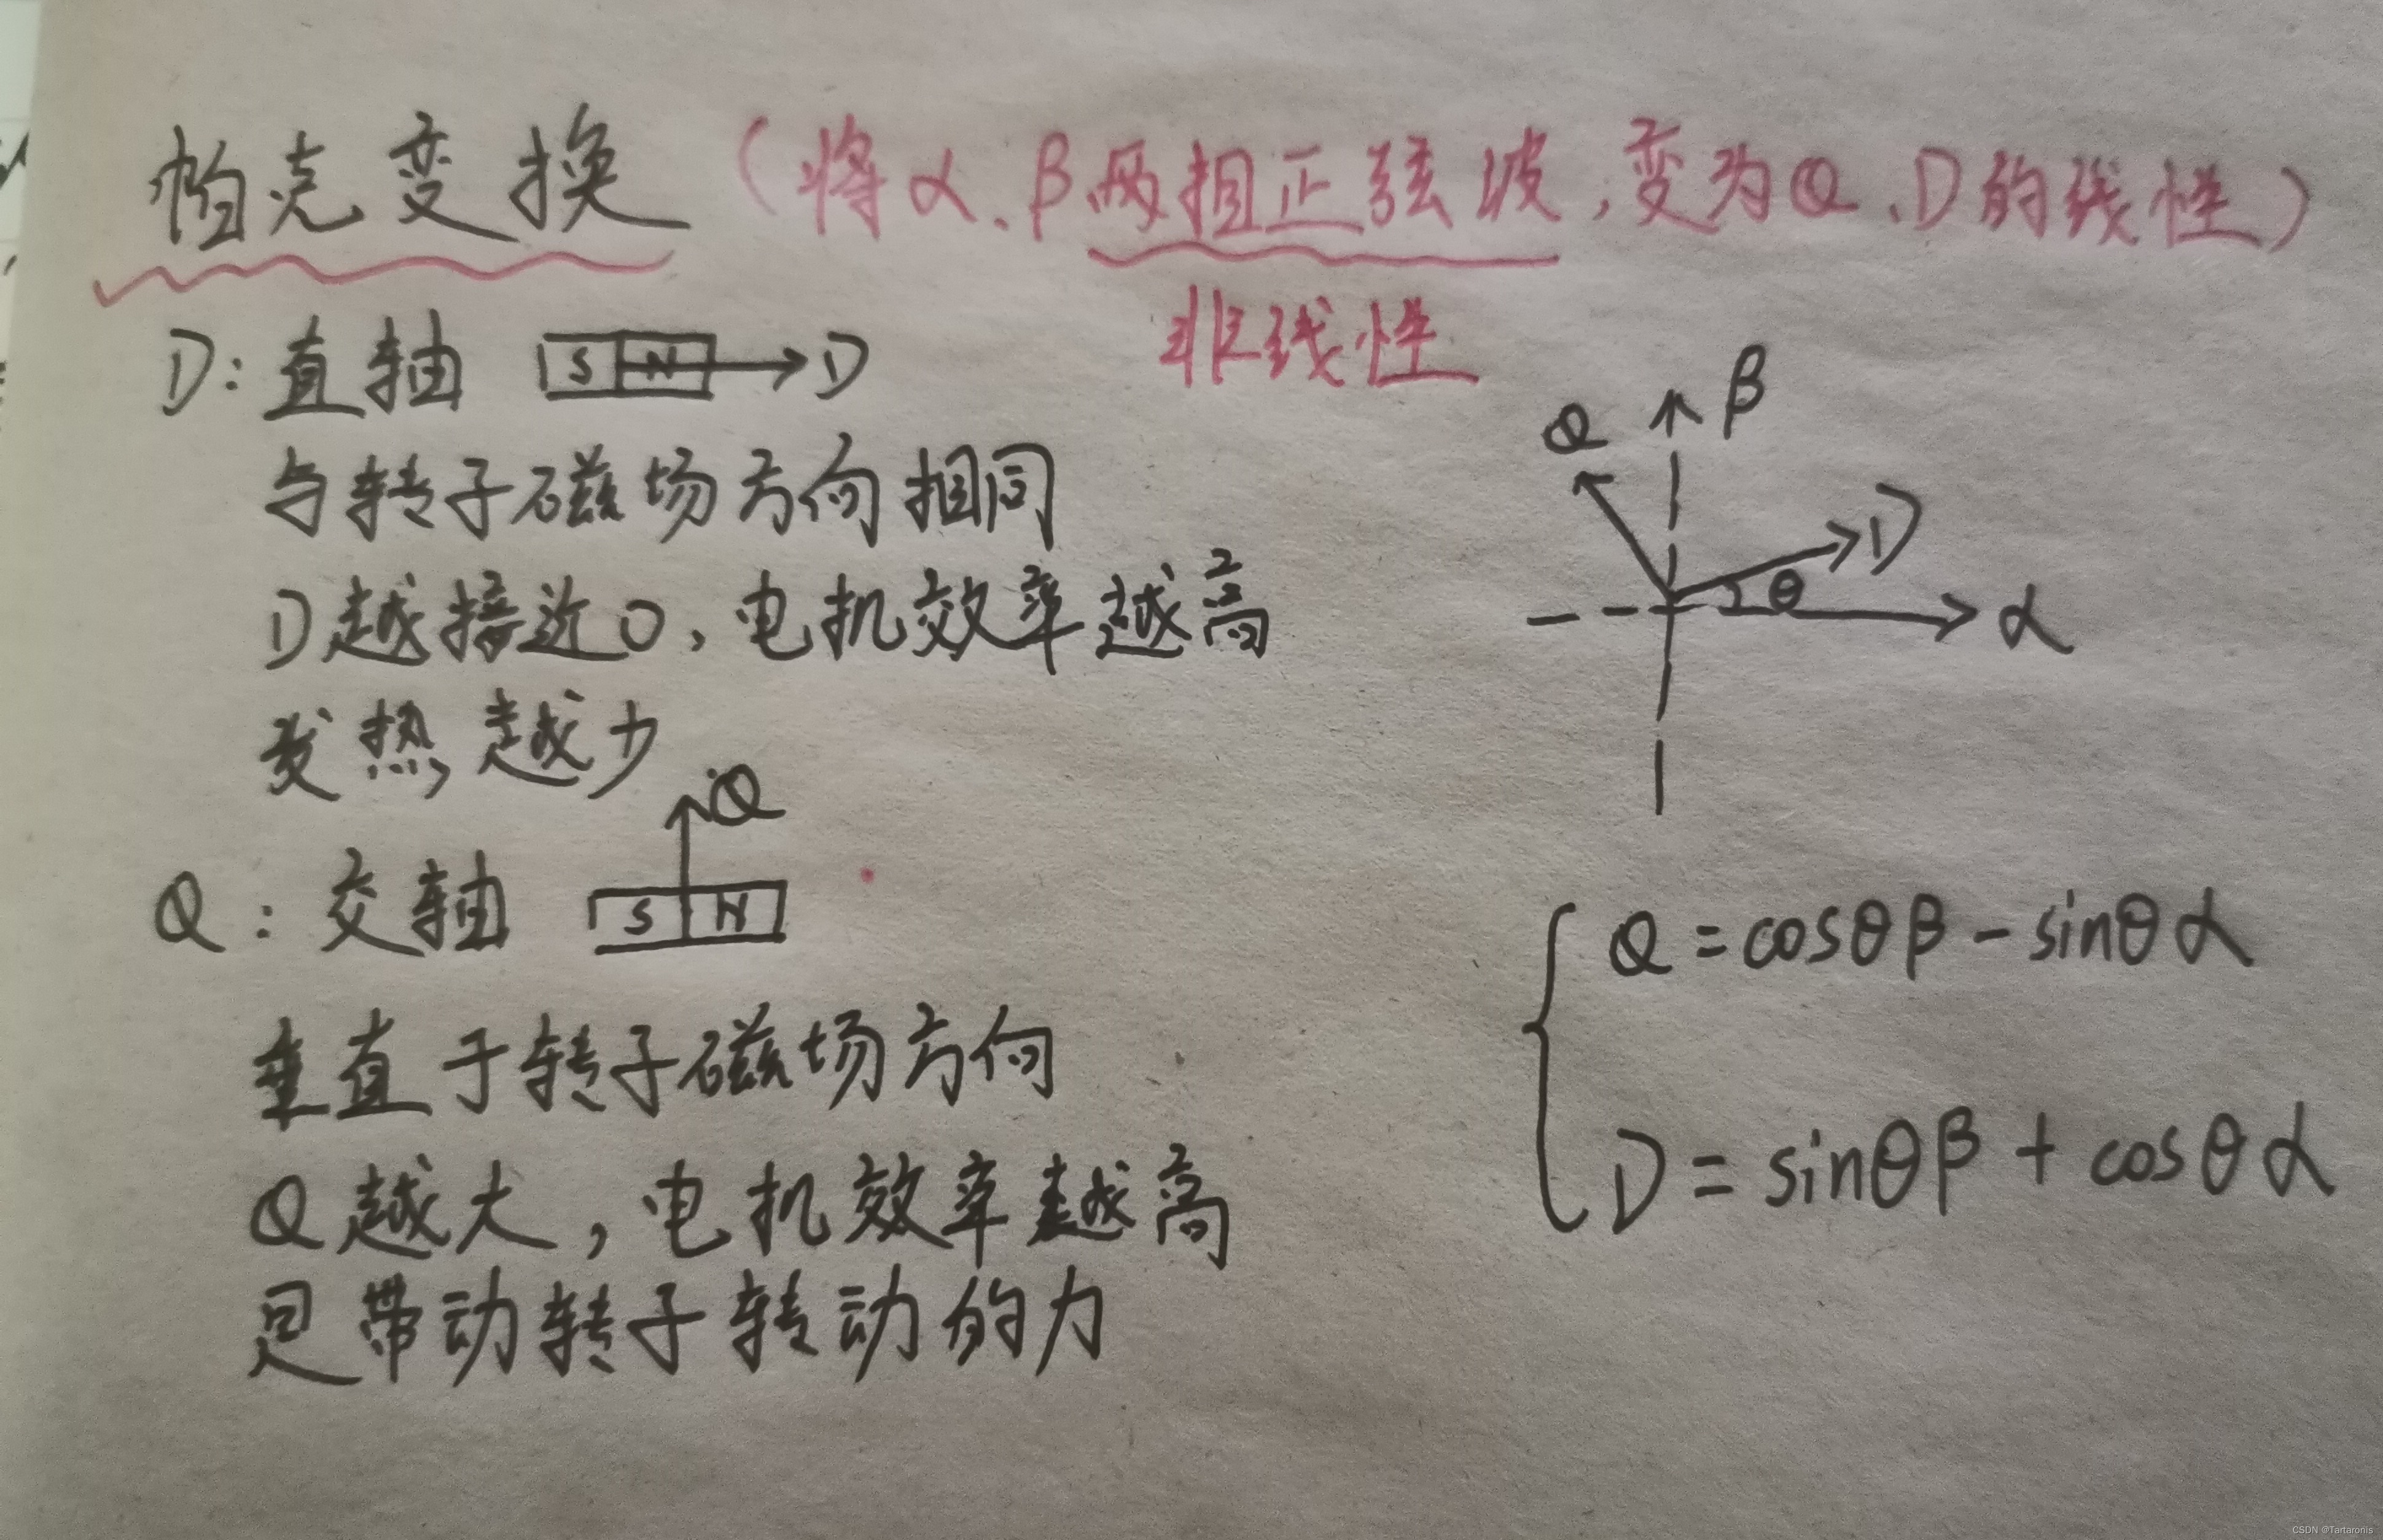 帕克变换（将α、β两相正弦波，变为Q、D的线性）
非线性
D：直轴 S N D
与转子磁场方向相同
D越接近0，电机效率越高
发热越少
Q：交轴 S N Q
垂直于转子磁场方向
Q越大，电机效率越高
是带动转子转动的力
Q β
D
θ α
Q = cosθβ - sinθα
D = sinθβ + cosθα
CSDN @Tartaronis